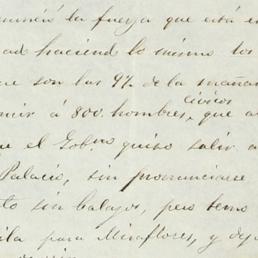 la fuerza que está e
ad haciend lo mismo los
e son las 9½ de la maña
nir á 800 hombres, cívicos que a
ue el Gob.no quiso salir a
Palacio, sin pronunciarse
to sin balazos, pero temo
ila para Miraflores, y dej